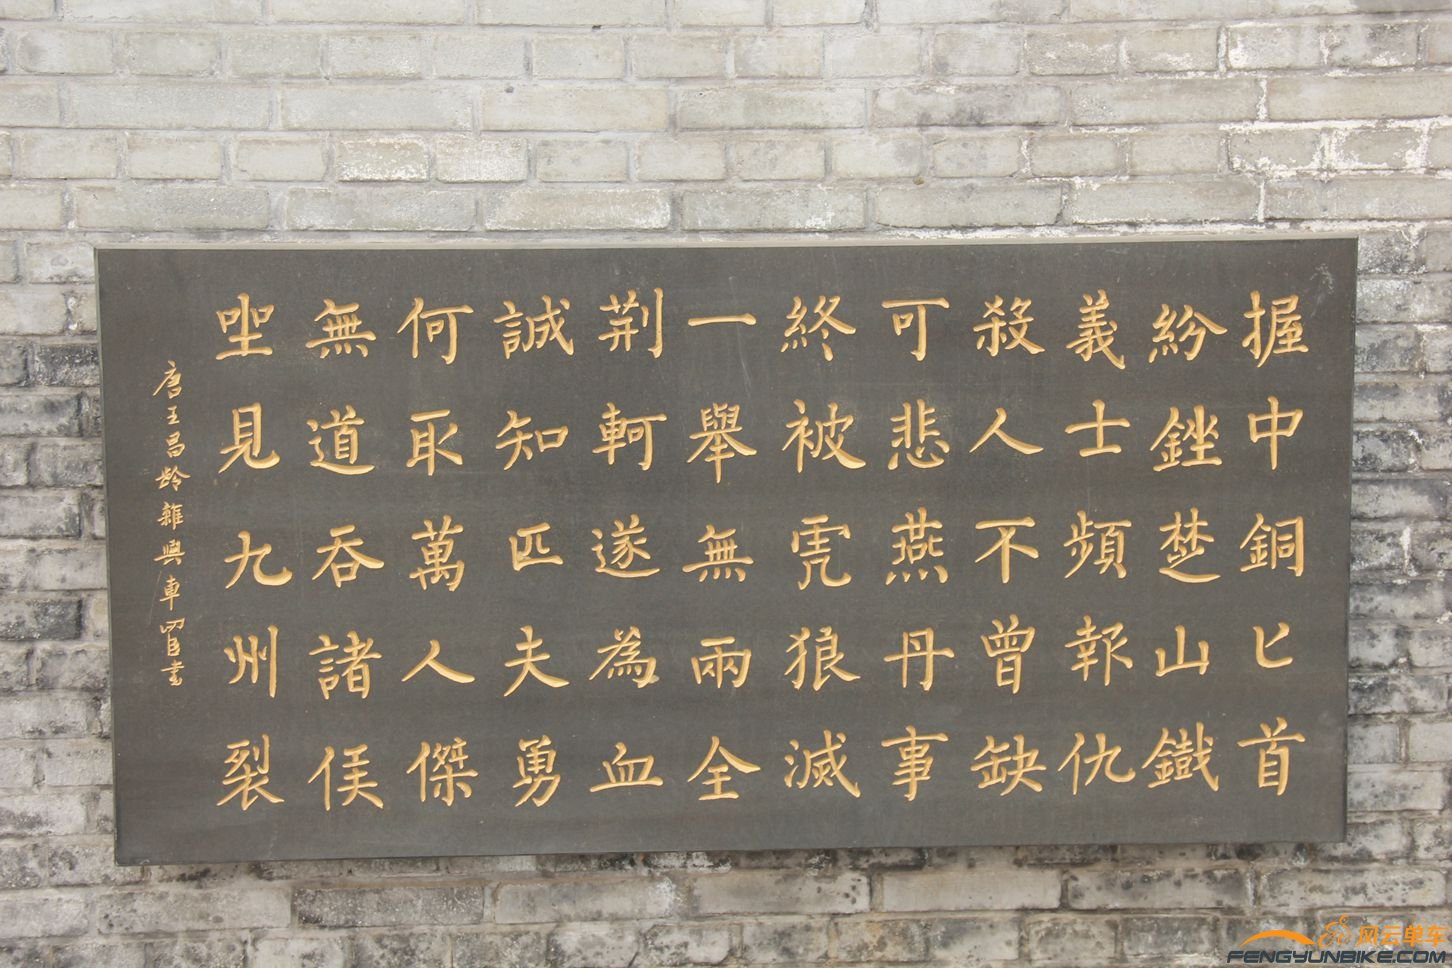 握中銅匕首
紛銼楚山鐵
義士頻報仇
殺人不曾缺
可悲燕丹事
終被虎狼滅
一舉無兩全
荆軻遂為血
誠知匹夫勇
何取萬人傑
無道吞諸侯
坐見九州裂
唐王昌齡雜興車
书
风云单车
FENGYUNBIKE.COM